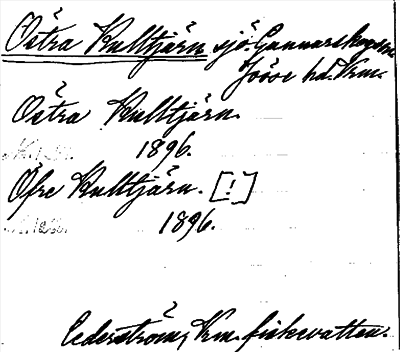 Östra Kulltjärn sjö Gunnarskogs sn
Jösse hd. Vrm.
Östra Kulltjärn.
1896.
Öfre Kulltjärn. [!]
1896.
Cederström, Vrm. fiskevatten.